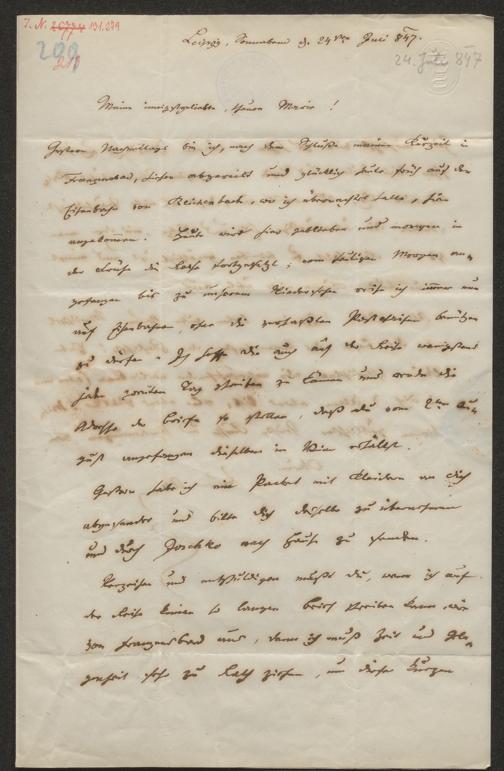 J. N. 26774 191.279
200
218
Leipzig, Sonnabend d. 24ten Juli 847.
24. Juli 847
Meine innigstgeliebte, theure Marie!
Gestern Nachmittags bin ich, nach dem Schluße meiner Kurzeit in
Franzensbad, hier abgereist und glücklich heute früh auf der
Eisenbahn von Reichenbach, wo ich übernachtet hatte, hier
angekommen. Heute wird hier geblieben und morgen in
der Frühe die Reise fortgesetzt; vom heutigen Morgen an-
gefangen bis zu unserem Wiedersehen reise ich immer nur
auf Eisenbahnen, ohne die verhaßten Postchaisen benützen
zu dürfen. Ich hoffe Dir auch auf der Reise wenigstens
jeden zweiten Tag schreiben zu können und werde die
Adresse der Briefe so stellen, daß Du vom 2ten Au-
gust angefangen dieselben in Wien erhältst.
Gestern habe ich ein Packet mit Kleidern an Dich
abgesendet und bitte Dich dasselbe zu übernehmen
und durch Joschko nach Hause zu senden.
Verzeihen und entschuldigen mußt Du, wenn ich auf
der Reise keine so langen Briefe schreiben kann, wie
von Franzensbad aus, denn ich muß Zeit und Gele-
genheit sehr zu Rath ziehen, um diese kurzen